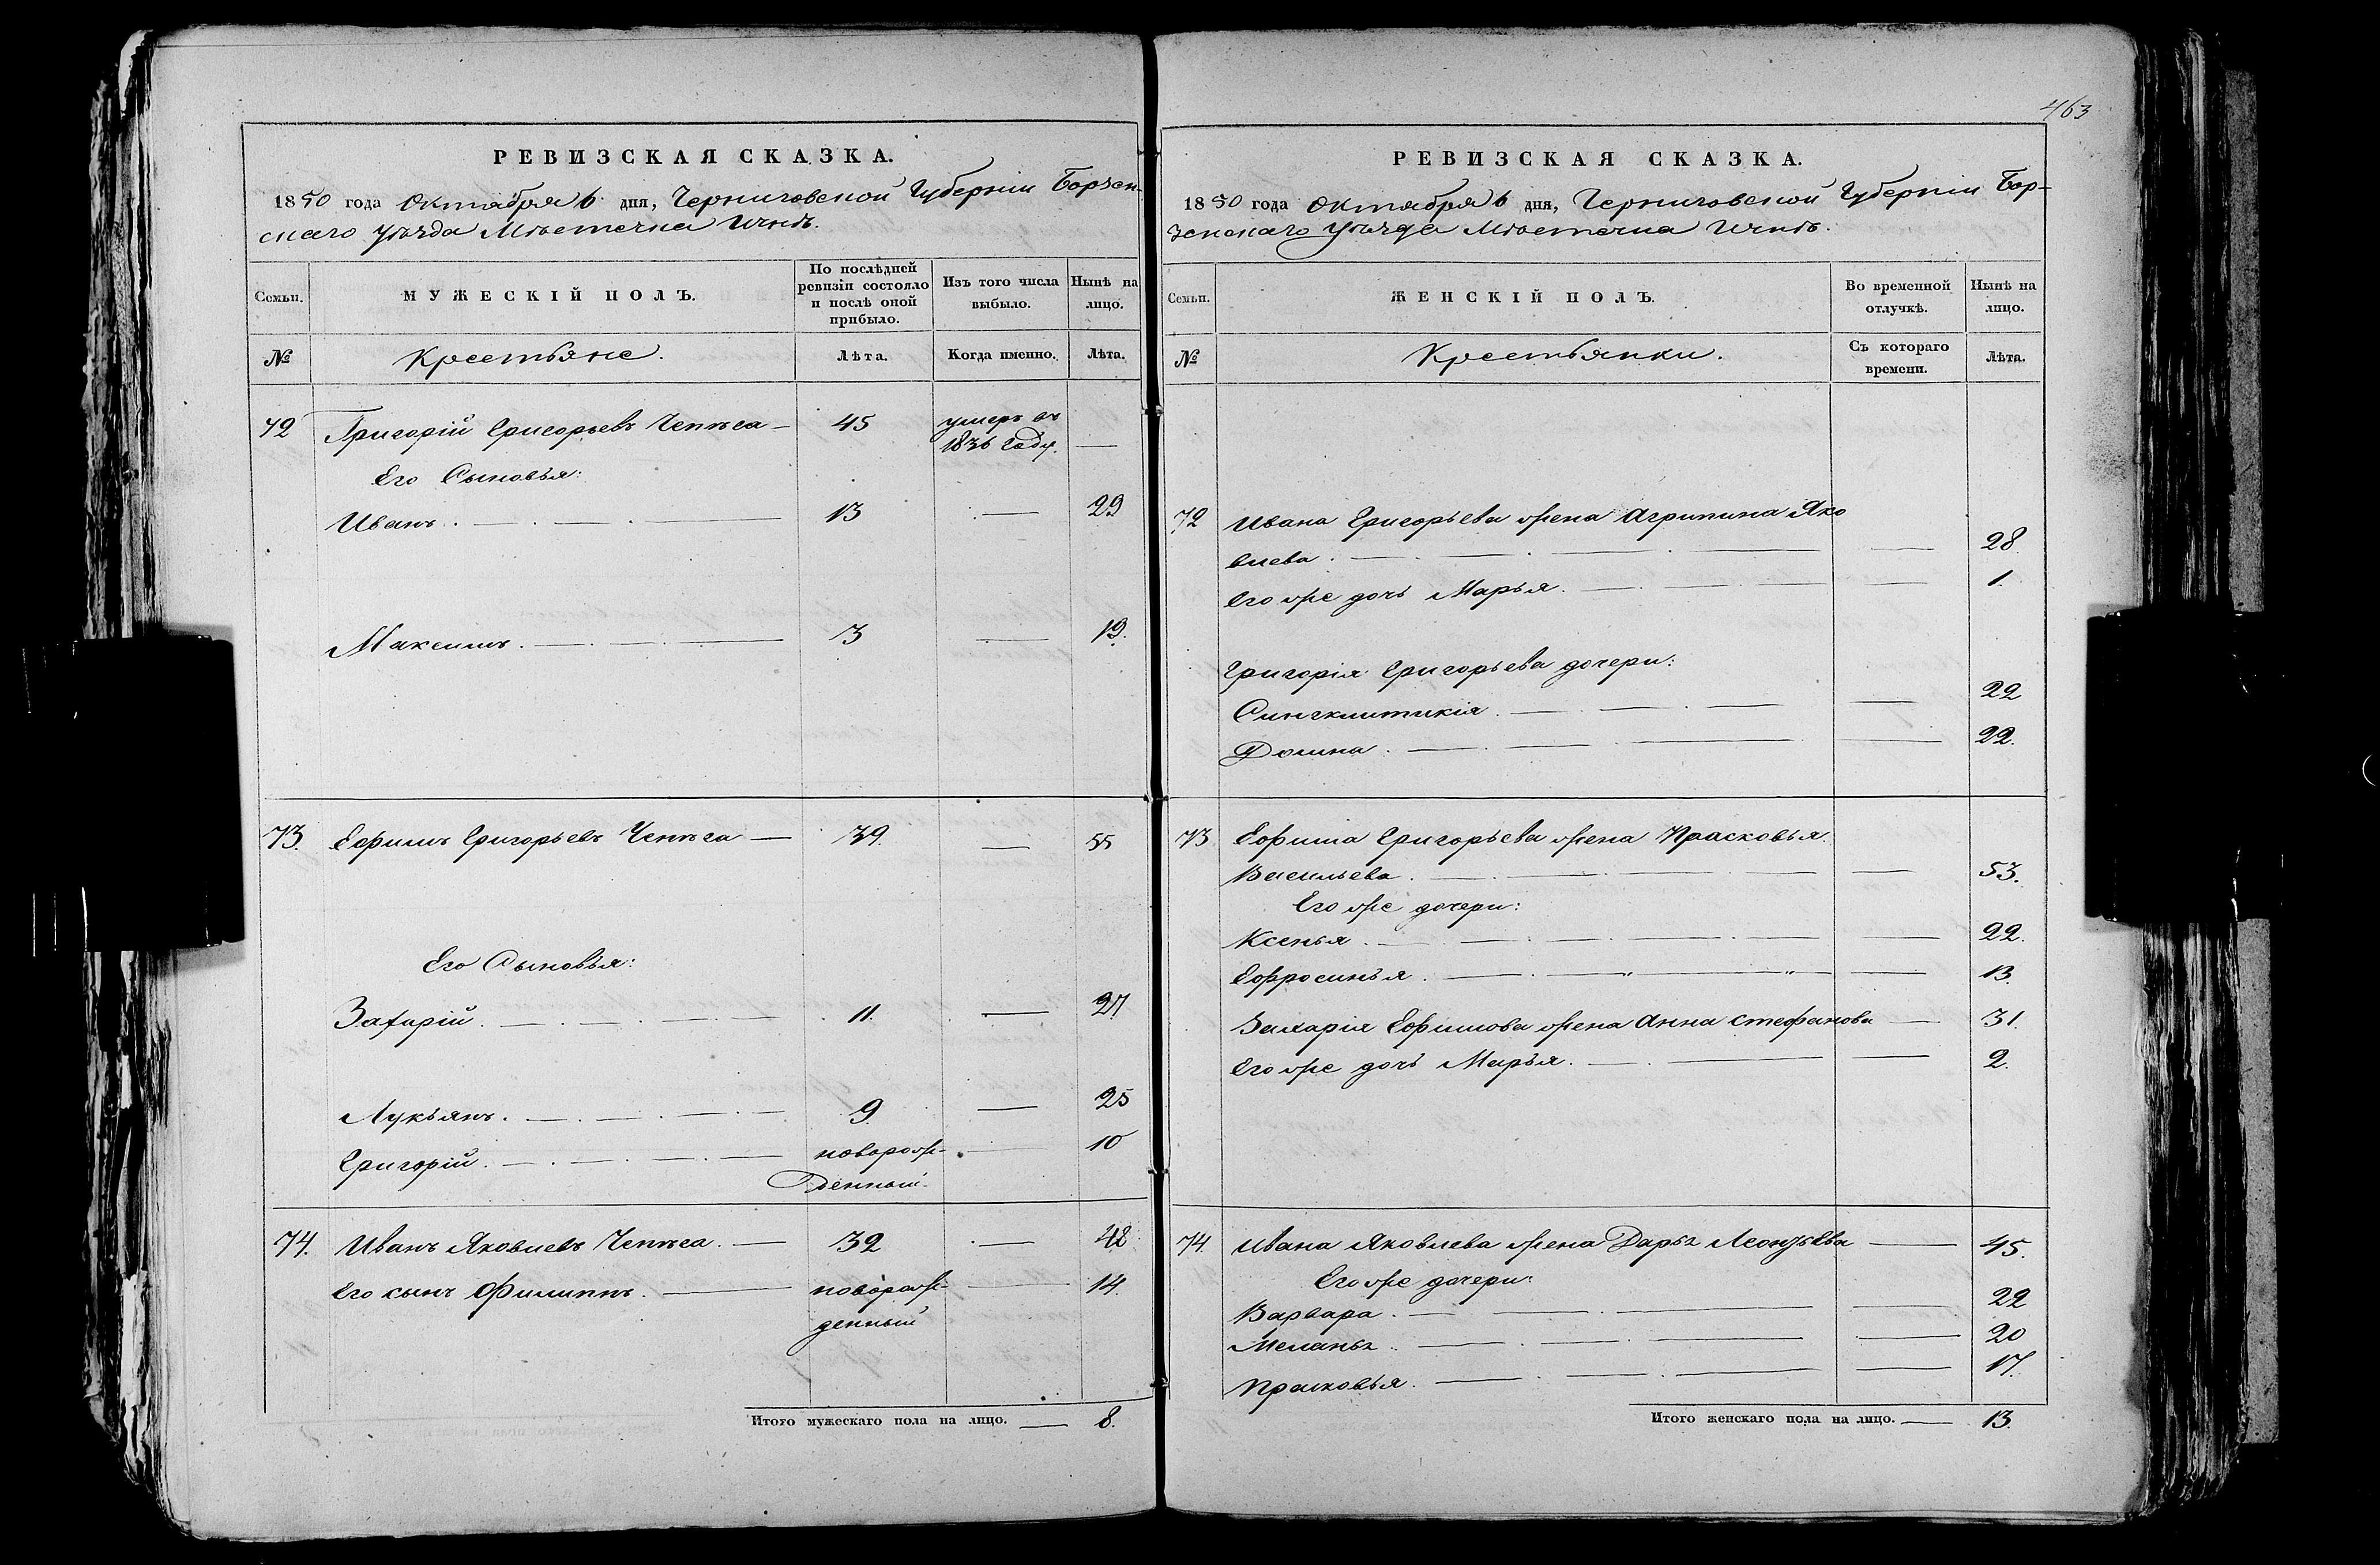 РЕВИЗСКАЯ СКАЗКА.
1850 года Октября 6 дня, Черниговской Губерніи Борзен-
скаго уѣзда Мѣстечка Ични.
Семьи.
МУЖЕСКІЙ ПОЛЪ.
По послѣдней ревизіи состояло и послѣ оной прибыло.
Изъ того числа выбыло.
Нынѣ на лицо.
№ Крестьяне. Лѣта. Когда именно. Лѣта.
72 Григорій Григорьевъ Чепѣга — 45 умеръ въ 1836 году. —
Его Сыновья:
Иванъ. — 13 — 29
Максимъ. — 3 — 19.
73. Ефимъ Григорьевъ Чепѣга — 39. — 55
Его Сыновья:
Захарій. — 11. — 27
Лукьянъ. — 9. — 25
Григорій. — новорож- — 10
денный.
74. Иванъ Яковлевъ Чепѣга. — 32 — 48
Его сынъ Филиппъ. — новорож- — 14.
денный
Итого мужескаго пола на лицо. — 8.
463
РЕВИЗСКАЯ СКАЗКА.
1850 года Октября 6 дня, Черниговской Губерніи Бор-
зенскаго уѣзда Мѣстечка Ични.
Семьи.
ЖЕНСКІЙ ПОЛЪ.
Во временной отлучкѣ.
Нынѣ на лицо.
№ Крестьянки. Съ котораго времени. Лѣта.
72 Ивана Григорьева жена Агрипина Яко
влева. — — 28.
Его же дочь Марья. — — 1.
Григорія Григорьева дочери:
Сингклитикія. — — 22
Домна. — — 22.
73 Ефима Григорьева жена Прасковья
Васильева. — — 53.
Его же дочери:
Ксенья. — — 22.
Ефросинья. — — 13.
Захарія Ефимова жена Анна Стефанова — 31.
Его же дочь Марья. — — 2.
74. Ивана Яковлева жена Дарья Леонтьева — 45.
Его же дочери:
Варвара. — — 22
Меланья. — — 20
Прасковья. — — 17.
Итого женскаго пола на лицо. — 13.